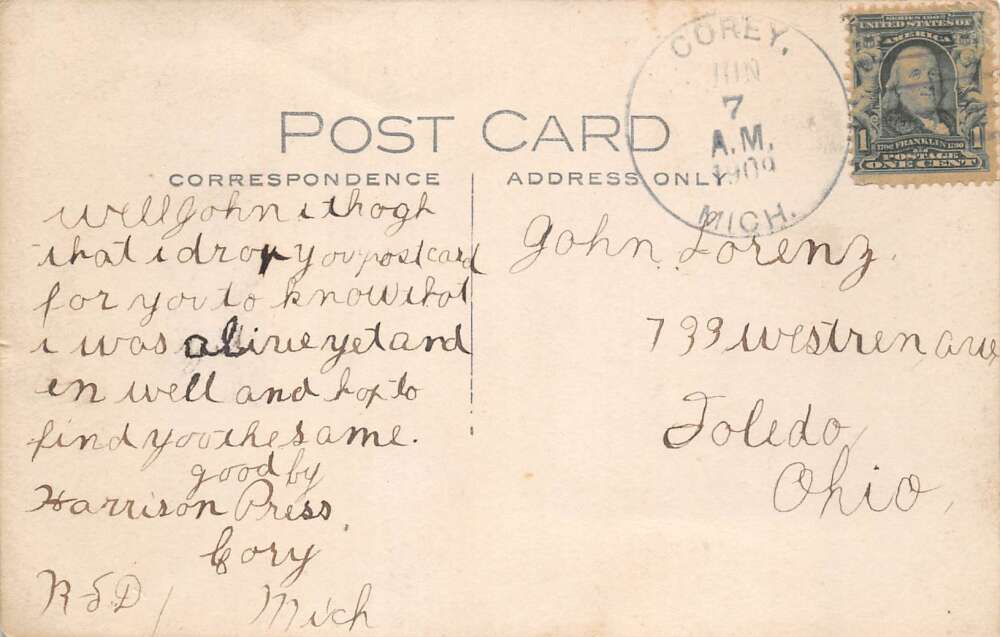 POST CARD
CORRESPONDENCE
ADDRESS ONLY.
COREY,
JUN
7
A.M.
1909
MICH.
SERIES 1902
UNITED STATES OF
AMERICA
1 1
1706 FRANKLIN 1790
POSTAGE
ONE CENT
well John i thogh
that i drop you postcard
for you to know that
i was alive yet and
en well and hop to
find you the same.
good by
Harrison Press
Cory
R F D 1 Mich
John Lorenz.
733 westren ave
Toledo,
Ohio,